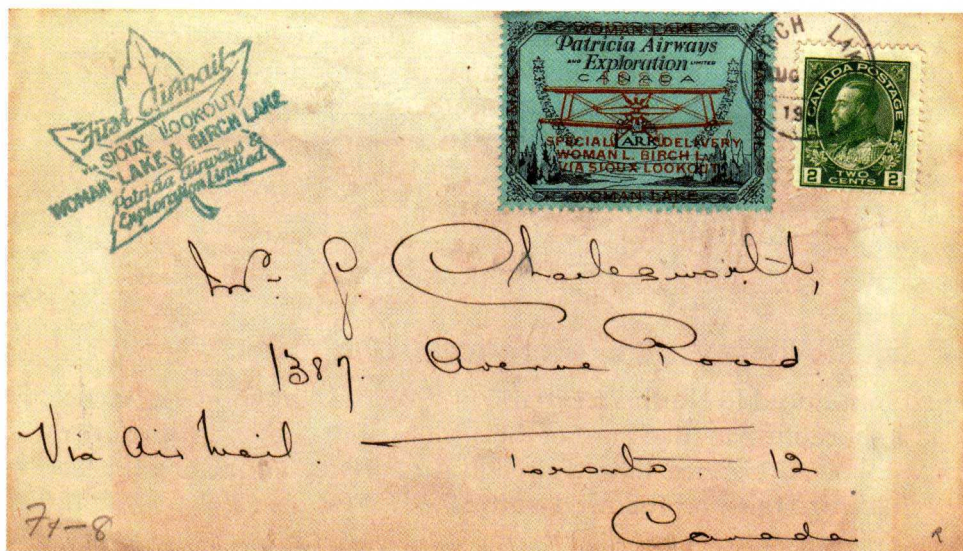 First Airmail
SIOUX LOOKOUT
WOMAN LAKE & BIRCH LAKE
Patricia Airways &
Exploration Limited
WOMAN LAKE
Patricia Airways
AND Exploration LIMITED
CANADA
SPECIAL DELIVERY
WOMAN L. BIRCH L.
VIA SIOUX LOOKOUT
WOMAN LAKE
CANADA POSTAGE
2 TWO CENTS 2
Charlesworth,
1387. Avenue Road
Via Air Mail.
Toronto 12
Canada